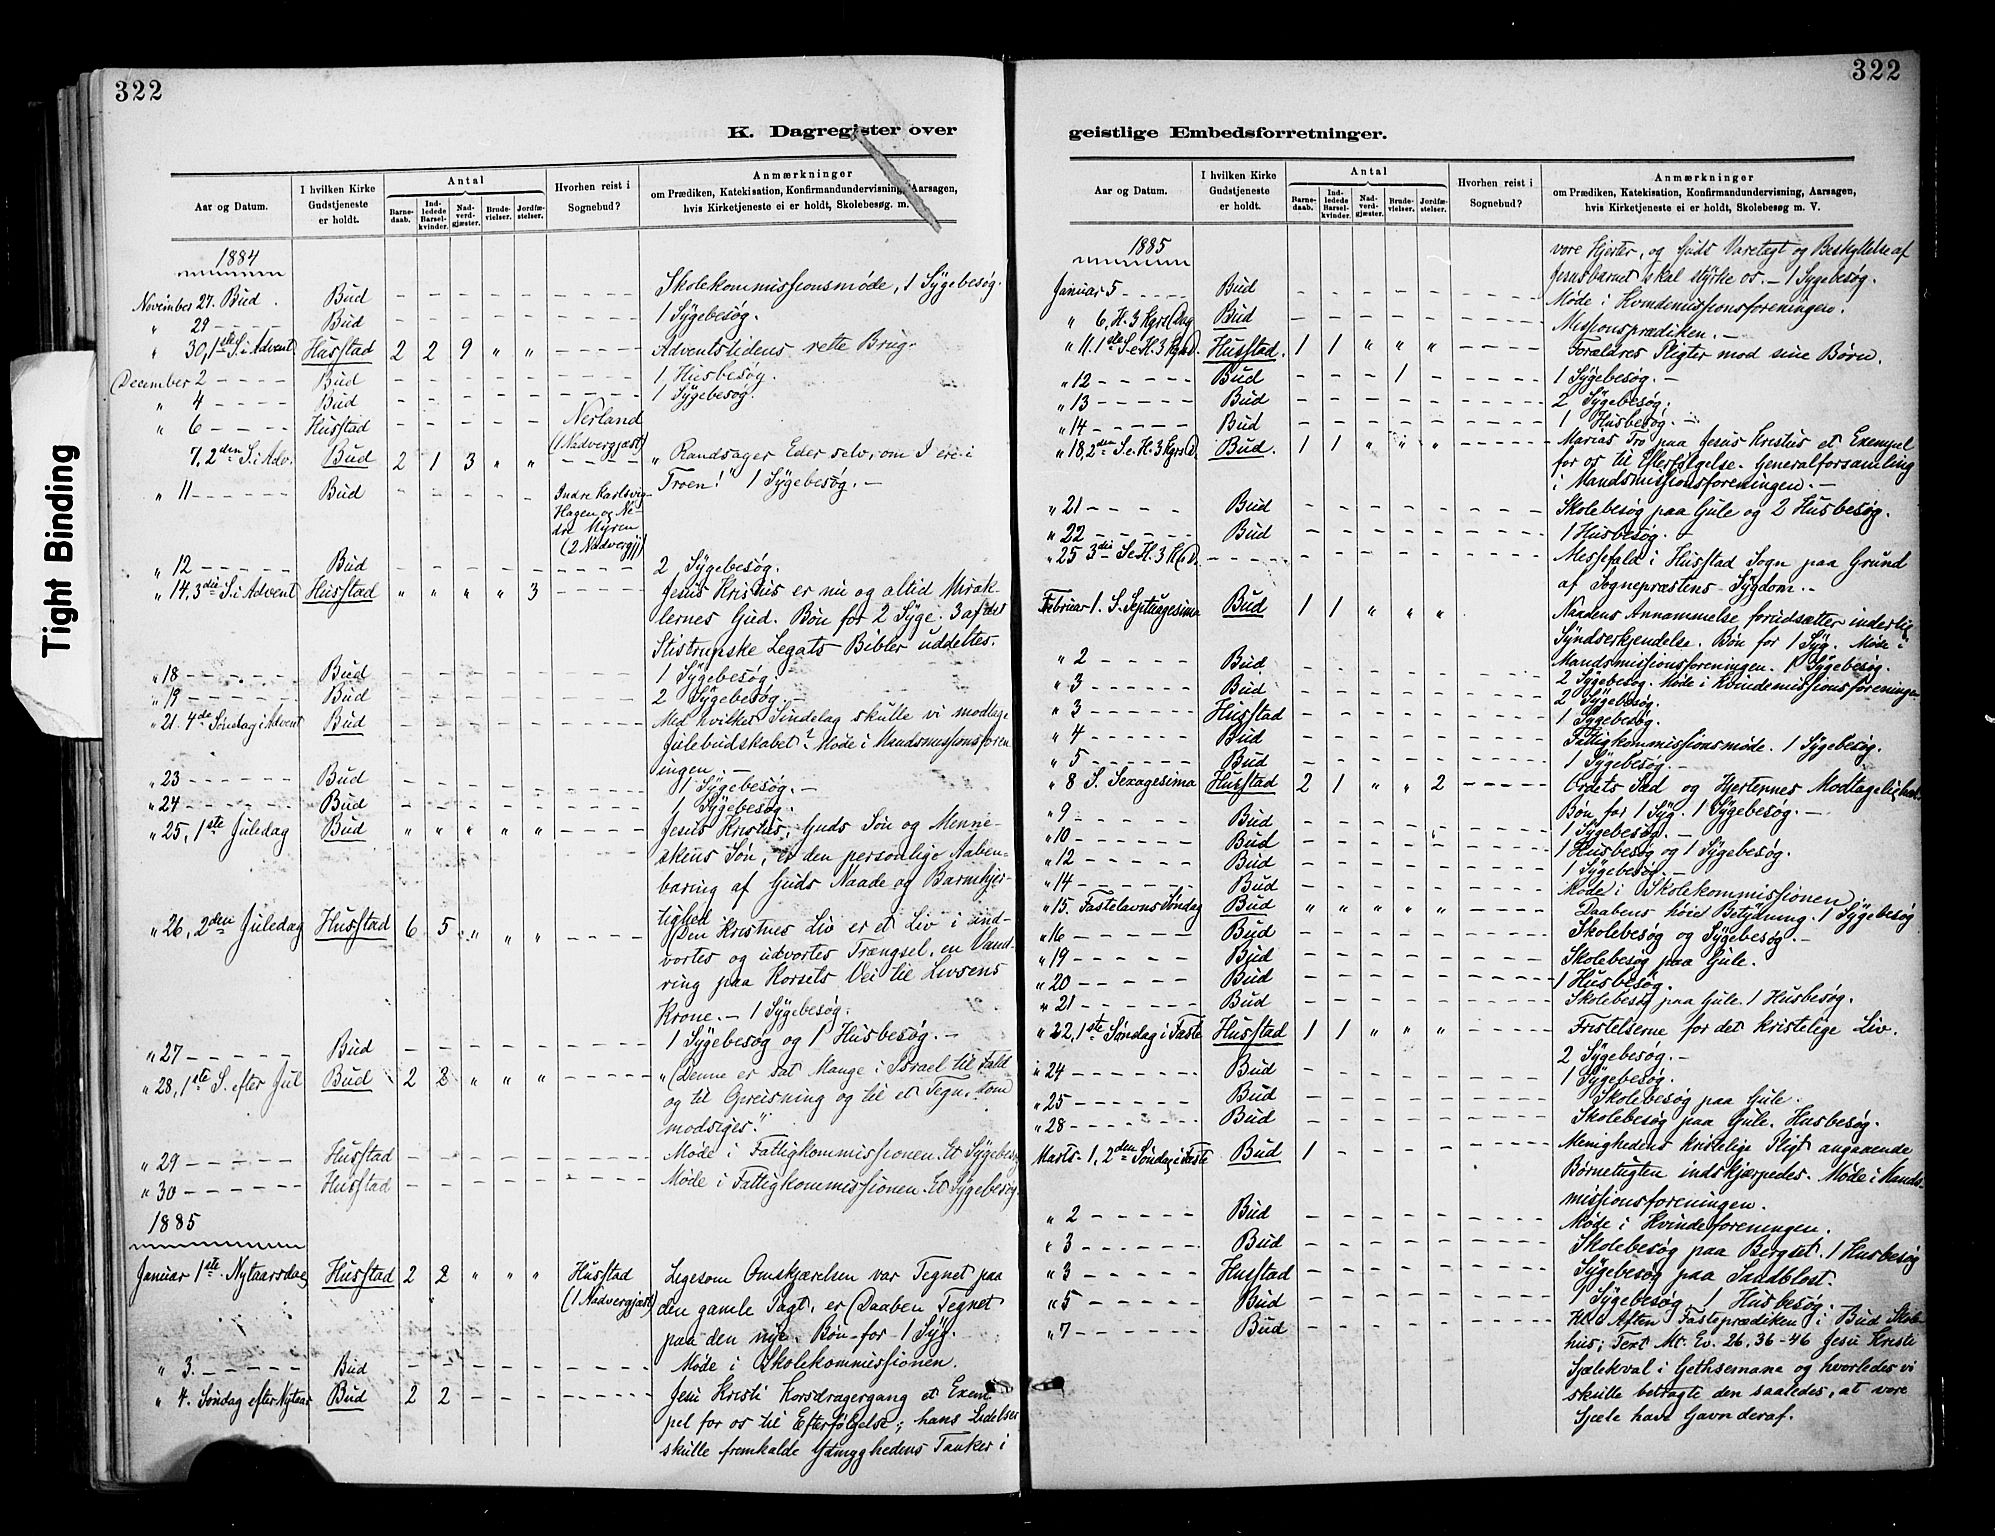 322
K. Dagregister over
Aar og Datum. I hvilken Kirke Gudstjeneste er holdt. Antal Barnedaab. Indledede Barselkvinder. Nadverdgjæster. Brudevielser. Jordfæstelser. Hvorhen reist i Sognebud? Anmærkninger om Prædiken, Katekisation, Konfirmandundervisning, Aarsagen, hvis Kirketjeneste ei er holdt, Skolebesøg m.
1884
November 27. Bud. Bud – – – – – Skolekommissionsmøde, 1 Sygebesøg.
" 29 – – – – Bud – – – – – 1 Sygebesøg.
" 30, 1ste S. i Advent Husstad 2 2 9 " " – – – – Adventstidens rette Brug.
December 2 – – – – Bud – – – – – 1 Husbesøg.
" 4 – – – – Bud – – – – – 1 Sygebesøg.
" 6 – – – – Husstad – – – – – Nerland
(1 Nadvergjæst)
7, 2den S. i Adv. Bud 2 1 3 " " – – – – "Randsager Eder selv, om I ere i
Troen!" 1 Sygebesøg. –
" 11 – – – – – Bud – – – – – Indre Karlsvig
Hagen og Ne-
dre Myren
(2 Nadvergj)
" 12 – – – – – Bud – – – – – 2 Sygebesøg.
" 14, 3die S. i Advent Husstad " " " " 3 – – – – Jesus Kristus er nu og altid Mirak-
lernes Gud. Bøn for 2 Syge. 3 af det
Legats Bibler uddeltes.
" 18 – – – – – Bud – – – – – 1 Sygebesøg.
" 19 – – – – – Bud – – – – – 2 Sygebesøg. –
" 21. 4de Søndag i Advent Bud – – – – – Med hvilket Sindelag skulle vi modtage
Julebudskabet? Møde i Mandsmissionsforen
ingen. –
" 23 – – – – – Bud – – – – – 1 Sygebesøg. –
" 24 – – – – – Bud – – – – – 1 Sygebesøg.
" 25, 1ste Juledag Bud " " " " " – – – – Jesus Kristus, Guds Søn og Menne-
skens Søn, er den personlige Aaben-
baring af Guds Naade og Barmhjer-
tighed
" 26, 2den Juledag Husstad 6 5 " " " – – – – Den Kristnes Liv er et Liv i ind-
vortes og udvortes Trængsel, en Vand-
ring paa Korsets Vei til Livsens
Krone. – 1 Sygebesøg.
" 27 – – – – – Bud – – – – – 1 Sygebesøg og 1 Husbesøg. –
" 28, 1ste S. efter Jul Bud 2 2 " " " – – – – "Denne er sat Mange i Israel til Fald
og til Opreisning og til et Tegn, som
modsiges".
" 29 – – – – – Husstad – – – – – Møde i Fattigkommissionen. Et Sygebesøg
" 30 – – – – – Husstad – – – – – Møde i Fattigkommissionen. Et Sygebesøg.
1885
Januar 1ste Nytaarsdag Husstad 2 2 " " " Husstad
(1 Nadvergjæst) Ligesom Omskjærelsen var Tegnet paa
den gamle Pagt, er Daaben Tegnet
paa den nye. Bøn for 1 Syg.
" 3. – – – – – Bud – – – – – Møde i Skolekommissionen.
" 4. Søndag efter Nytaar Bud 2 2 – – – – – – – Jesu Kristi Korsdragergang et Exem
pel for os til Efterfølgelse; hans Lidelser
skulle fremkalde Ydmyghedens Tanker i
322
geistlige Embedsforretninger.
Aar og Datum. I hvilken Kirke Gudstjeneste er holdt. Antal Barnedaab. Indledede Barselkvinder. Nadverdgjæster. Brudevielser. Jordfæstelser. Hvorhen reist i Sognebud? Anmærkninger om Prædiken, Katekisation, Konfirmandundervisning, Aarsagen, hvis Kirketjeneste ei er holdt, Skolebesøg m. V.
1885
vore Hjerter, og Guds Varetegt og Beskyttelse af
Jesusbarnet skal styrke os. – 1 Sygebesøg.
Januar 5 – – – – Bud – – – – – Møde i Kvindemissionsforeningen.
" 6, H. 3 Kgrs Dag Bud – – – – – Missionsprædiken. –
" 11. 1ste S. e. H. 3 Kgrs D. Husstad. 1 1 " " " – – – – Forældres Pligter mod sine Børn.
" 12 – – – – – Bud – – – 1 – 1 Sygebesøg. –
" 13 – – – – – Bud – – – – – 2 Sygebesøg.
" 14 – – – – – Bud – – – – – 1 Husbesøg. –
" 18, 2den S. e. H. 3 Kgrs D. Bud. 1 1 " " " – – – – Marias Tro paa Jesus Kristus et Exempel
for os til Efterfølgelse. Generalforsamling
i Mandsmissionsforeningen. –
" 21 – – – – Bud – – – – – Skolebesøg paa Gule og 2 Husbesøg.
" 22 – – – – Bud – – – – – 1 Husbesøg. –
" 25 3die S. e. H. 3 K. D. – – – – Messefald i Husstad Sogn paa Grund
af Sognepræstens Sygdom. –
Februar 1. S. Septuagesima Bud 1 1 " " " Naadens Annammelse forudsætter inderlig
Syndserkjendelse. Bøn for 1 Syg. Møde i
Mandsmissionsforeningen. 1 Sygebesøg.
" 2 – – – – – Bud – – – – – 2 Sygebesøg. Møde i Kvindemissionsforeningen
" 3 – – – – – Bud – – – – – 2 Sygebesøg.
" 3 – – – – – Husstad – – – – – 1 Sygebesøg.
" 4 – – – – – Bud – – – – – Fattigkommissionsmøde. 1 Sygebesøg.
" 5 – – – – – Bud – – – – – 1 Sygebesøg. –
" 8 S. Sexagesima Husstad 2 1 " " 2 – – – – Ordets Sæd og Hjerternes Modtagelighed.
Bøn for 1 Syg. 1 Sygebesøg. –
" 9 – – – – – Bud – – – – – 1 Sygebesøg. –
" 10 – – – – – Bud – – – – – 1 Husbesøg og 1 Sygebesøg.
" 12 – – – – – Bud – – – – – 1 Sygebesøg. –
" 14 – – – – – Bud – – – – – Møde i Skolekommissionen
" 15. Fastelavns Søndag Bud " " " " " – – – – Daabens høie Betydning. 1 Sygebesøg
" 16 – – – – – Bud – – – – – Skolebesøg og Sygebesøg. –
" 19 – – – – – Bud – – – – – Skolebesøg paa Gule.
" 20 – – – – – Bud – – – – – 1 Husbesøg.
" 21 – – – – – Bud – – – – – Skolebesøg paa Gule. 1 Husbesøg.
" 22, 1ste Søndag i Faste Husstad 1 1 " " " – – – – Fristelserne for det kristelige Liv.
" 24 – – – – – Bud – – – – – 2 Sygebesøg. –
" 25 – – – – – Bud – – – – – 1 Sygebesøg.
" 28 – – – – – Bud – – – – – Skolebesøg paa Gule.
Skolebesøg paa Gule. Husbesøg.
Marts 1, 2den Søndag i Faste Bud 1 – – – – Menighedens kristelige Pligt angaaende
Børnetugten indskjærpedes. Møde i Mands-
missionsforeningen.
" 2 – – – – – Bud – – – – – Møde i Kvindeforeningen.
" 3 – – – – – Bud – – – – – Skolebesøg paa Bergset. 1 Husbesøg
" 3 – – – – – Husstad – – – – – Sygebesøg paa Sandblost.
" 5 – – – – – Bud – – – – – 1 Sygebesøg 1 Husbesøg.
" 7 – – – – – Bud – – – – – Aften Fasteprædiken i Bud Skole-
hus; Text Mt. Ev. 26, 36-46 Jesu Kristi
Sjælekval i Gethsemana og hvorledes vi
skulle betragte den saaledes, at vore
Sjæle have Gavn deraf.
Tight Binding